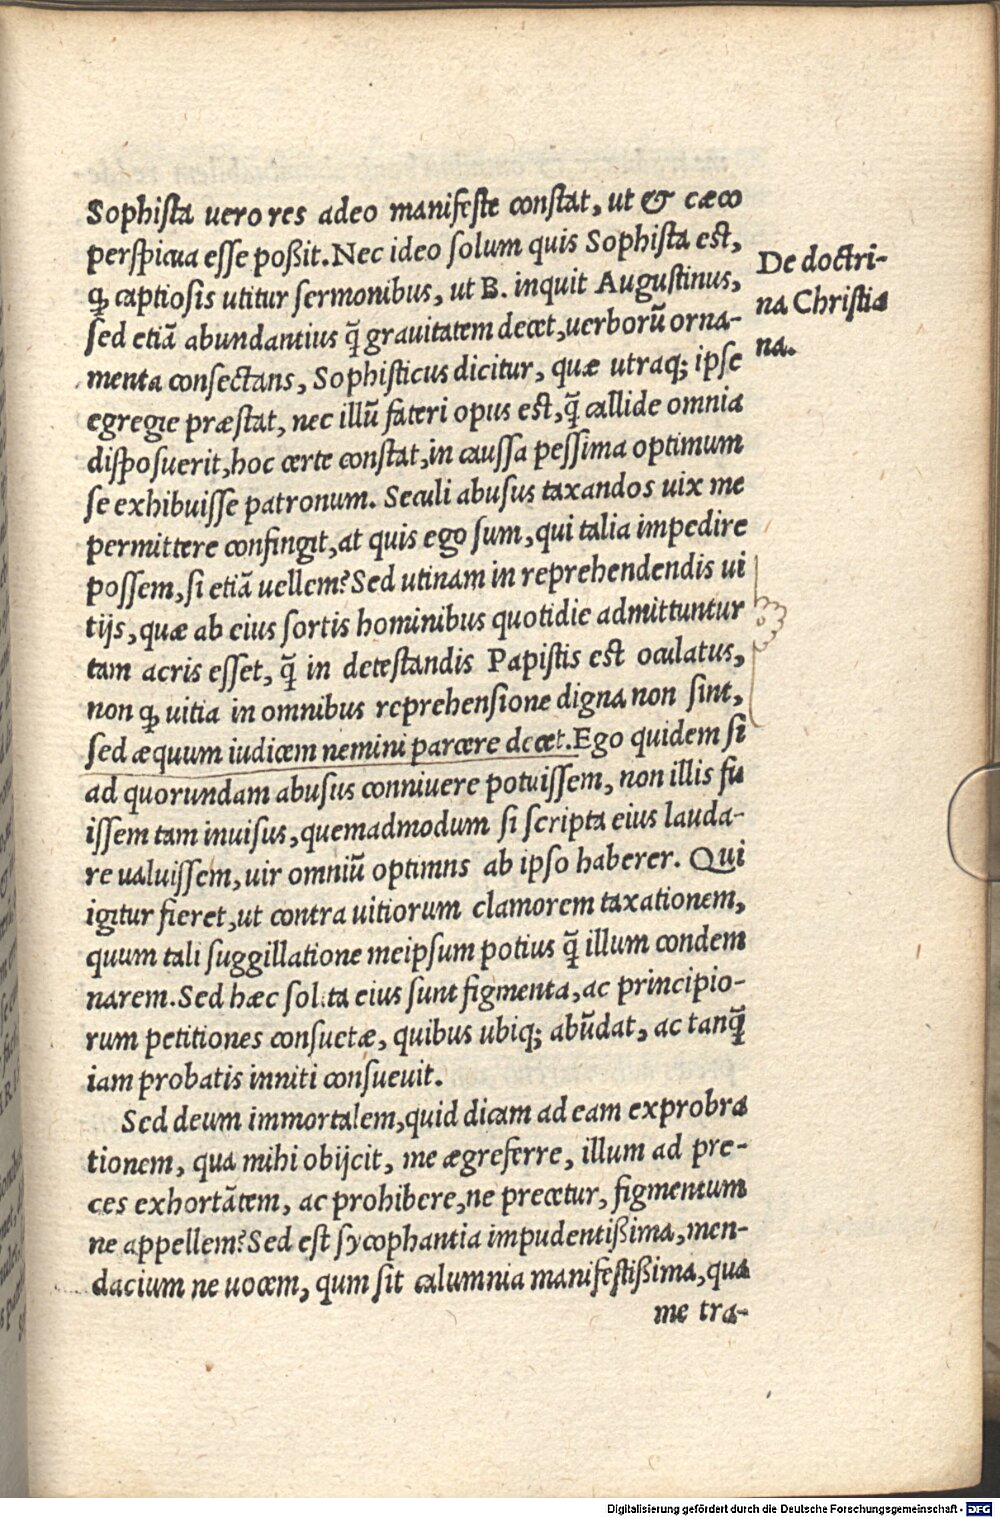 Sophista uero res adeo manifeste constat, ut & cæco
perspicua esse poßit. Nec ideo solum quis Sophista est,
ꝙ captiosis utitur sermonibus, ut B. inquit Augustinus,
sed etiā abundantius q̃ grauitatem decet, uerborū orna-
menta consectans, Sophisticus dicitur, quæ utraq; ipse
egregie præstat, nec illū fateri opus est, q̃ callide omnia
disposuerit, hoc certe constat, in caussa pessima optimum
se exhibuisse patronum. Seculi abusus taxandos uix me
permittere confingit, at quis ego sum, qui talia impedire
possem, si etiā uellem? Sed utinam in reprehendendis ui
tijs, quæ ab eius sortis hominibus quotidie admittuntur
tam acris esset, q̃ in detestandis Papistis est oculatus,
non ꝙ uitia in omnibus reprehensione digna non sint,
sed æquum iudicem nemini parcere decet. Ego quidem si
ad quorundam abusus conniuere potuissem, non illis fu
issem tam inuisus, quemadmodum si scripta eius lauda-
re ualuissem, uir omniū optimns ab ipso haberer. Qui
igitur fieret, ut contra uitiorum clamorem taxationem,
quum tali suggillatione meipsum potius q̃ illum condem
narem. Sed hæc solita eius sunt figmenta, ac principio-
rum petitiones consuetæ, quibus ubiq; abūdat, ac tanq̃
iam probatis inniti consueuit.
Sed deum immortalem, quid dicam ad eam exprobra
tionem, qua mihi obijcit, me ægreferre, illum ad pre-
ces exhortātem, ac prohibere, ne precetur, figmentum
ne appellem? Sed est sycophantia impudentißima, men-
dacium ne uocem, qum sit calumnia manifestißima, qua
me tra-
De doctri-
na Christia
na.
Digitalisierung gefördert durch die Deutsche Forschungsgemeinschaft - DFG